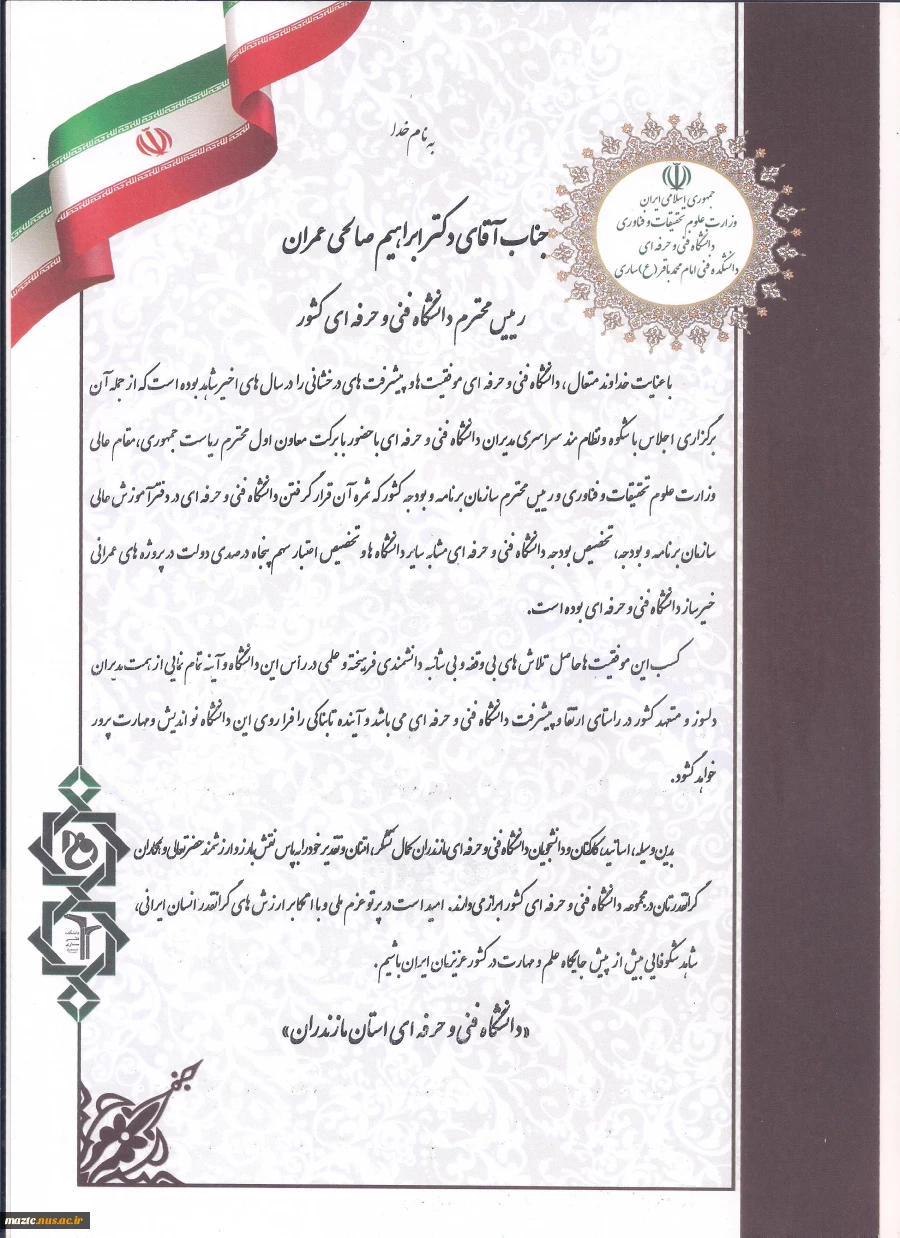 به نام خدا
جمهوری اسلامی ایران
وزارت علوم تحقیقات و فناوری
دانشگاه فنی و حرفه ای
دانشکده فنی امام محمد باقر (ع) ساری
جناب آقای دکتر ابراهیم صالحی عمران
رییس محترم دانشگاه فنی و حرفه ای کشور
با عنایت خداوند متعال، دانشگاه فنی و حرفه ای موفقیت ها و پیشرفت های درخشانی را در سال های اخیر شاهد بوده است که از جمله آن
برگزاری اجلاس با شکوه و نظام مند سراسری مدیران دانشگاه فنی و حرفه ای با حضور با برکت معاون اول محترم ریاست جمهوری، مقام عالی
وزارت علوم تحقیقات و فناوری و رییس محترم سازمان برنامه و بودجه کشور که ثمره آن قرار گرفتن دانشگاه فنی و حرفه ای در دفتر آموزش عالی
سازمان برنامه و بودجه، تخصیص بودجه دانشگاه فنی و حرفه ای مشابه سایر دانشگاه ها و تخصیص اعتبار سهم پنجاه درصدی دولت در پروژه های عمرانی
خیرساز دانشگاه فنی و حرفه ای بوده است.
کسب این موفقیت ها حاصل تلاش های بی وقفه و بی شائبه دانشمندی فرهیخته و علمی در رأس این دانشگاه و آینه تمام نمایی از همت مدیران
دلسوز و متعهد کشور در راستای ارتقا و پیشرفت دانشگاه فنی و حرفه ای می باشد و آینده تابناکی را فرا روی این دانشگاه نو اندیش و مهارت پرور
خواهد گشود.
بدین وسیله، اساتید، کارکنان و دانشجویان دانشگاه فنی و حرفه ای مازندران کمال تشکر، امتنان و تقدیر خود را به پاس نقش بارز و ارزشمند حضرتعالی و همکاران
گرانقدرتان در مجموعه دانشگاه فنی و حرفه ای کشور ابراز می دارند. امید است در پرتو عزم ملی و با اتکا بر ارزش های گرانقدر انسان ایرانی،
شاهد شکوفایی بیش از پیش جایگاه علم و مهارت در کشور عزیزمان ایران باشیم.
«دانشگاه فنی و حرفه ای استان مازندران»
maztc.nus.ac.ir